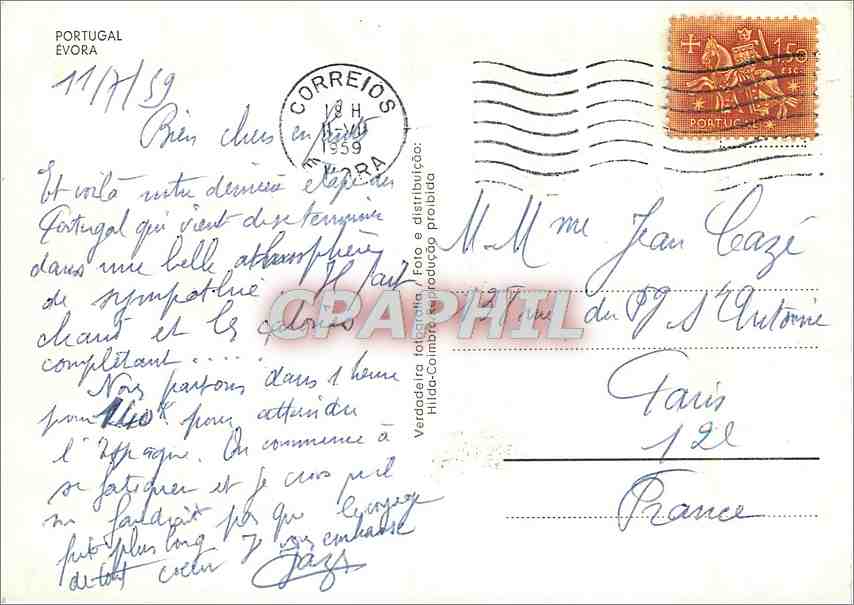 PORTUGAL
ÉVORA
11/7/59
Bien chers enfants
Et voilà notre dernière étape du
Portugal qui vient de se terminer
dans une belle atmosphère
de sympathie. Il fait
chaud et les calories
complètent.....
Nous partons dans 1 heure
pour 140 K pour atteindre
l'Espagne. On commence à
se fatiguer et je crois qu'il
ne faudrait pas que le voyage
fut plus long Je vous embrasse
de tout coeur
CORREIOS
19 H
11-VII
1959
ÉVORA
1$50
ESC.
PORTUGAL
Verdadeira fotografia / Foto e distribuição:
Hilda-Coimbra-Reprodução proibida
M. Mme Jean Cazé
rue du Fg St Antoine
Paris
12e
France
CPAPHIL